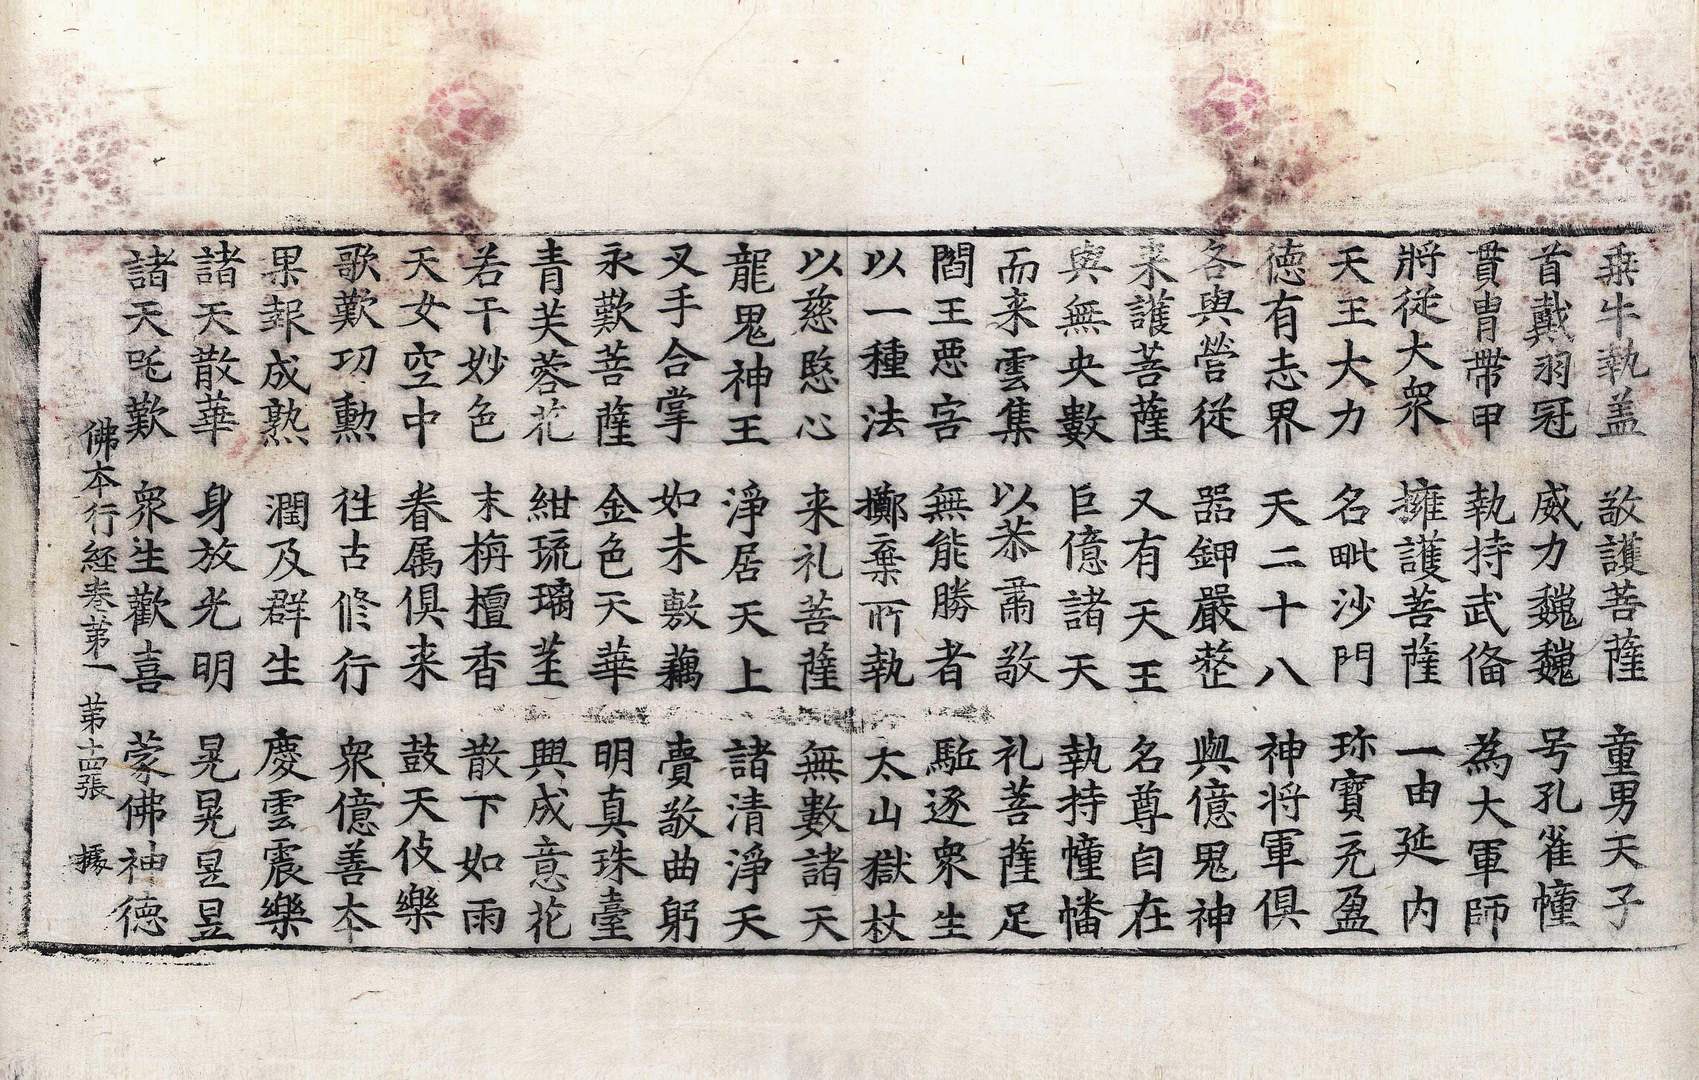 乗牛執盖 敬護菩薩 童男天子
首戴羽冠 威力巍巍 号孔雀幢
貫冑帶甲 執持武俻 為大軍師
將從大衆 擁護菩薩 一由延内
天王大力 名毗沙門 珎寳充盈
德有志界 天二十八 神将軍俱
各與營從 器鉀嚴整 與億鬼神
来護菩薩 又有天王 名尊自在
與無央數 巨億諸天 執持幢幡
而来雲集 以恭肅敬 礼菩薩足
閻王惡害 無能勝者 駈逐衆生
以一種法 擲棄所執 太山獄杖
以慈愍心 来礼菩薩 無數諸天
龍鬼神王 淨居天上 諸清淨天
叉手合掌 如未敷藕 賣敬曲躬
永歎菩薩 金色天華 明真珠臺
青芙蓉花 紺琉璃莖 興成意花
若干妙色 末栴檀香 散下如雨
天女空中 眷属俱来 鼓天伎樂
歌歎功勲 徃古修行 衆億善本
果報成熟 潤及群生 慶雲震樂
諸天散華 身放光明 晃晃昱昱
諸天咤歎 衆生歡喜 蒙佛神德
佛本行経卷第一 第十四張 據